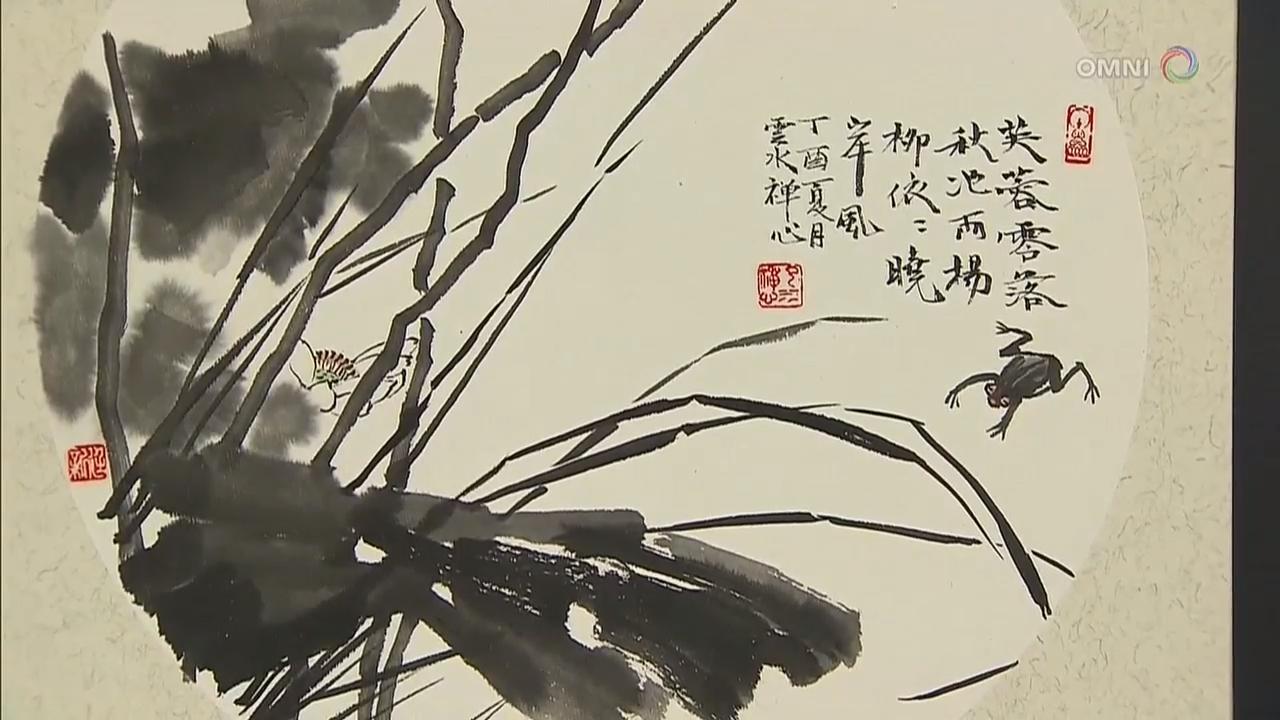 OMNI
芙蓉零落
秋池雨楊
柳依〻曉
岸風
丁酉夏月
雲水禅心